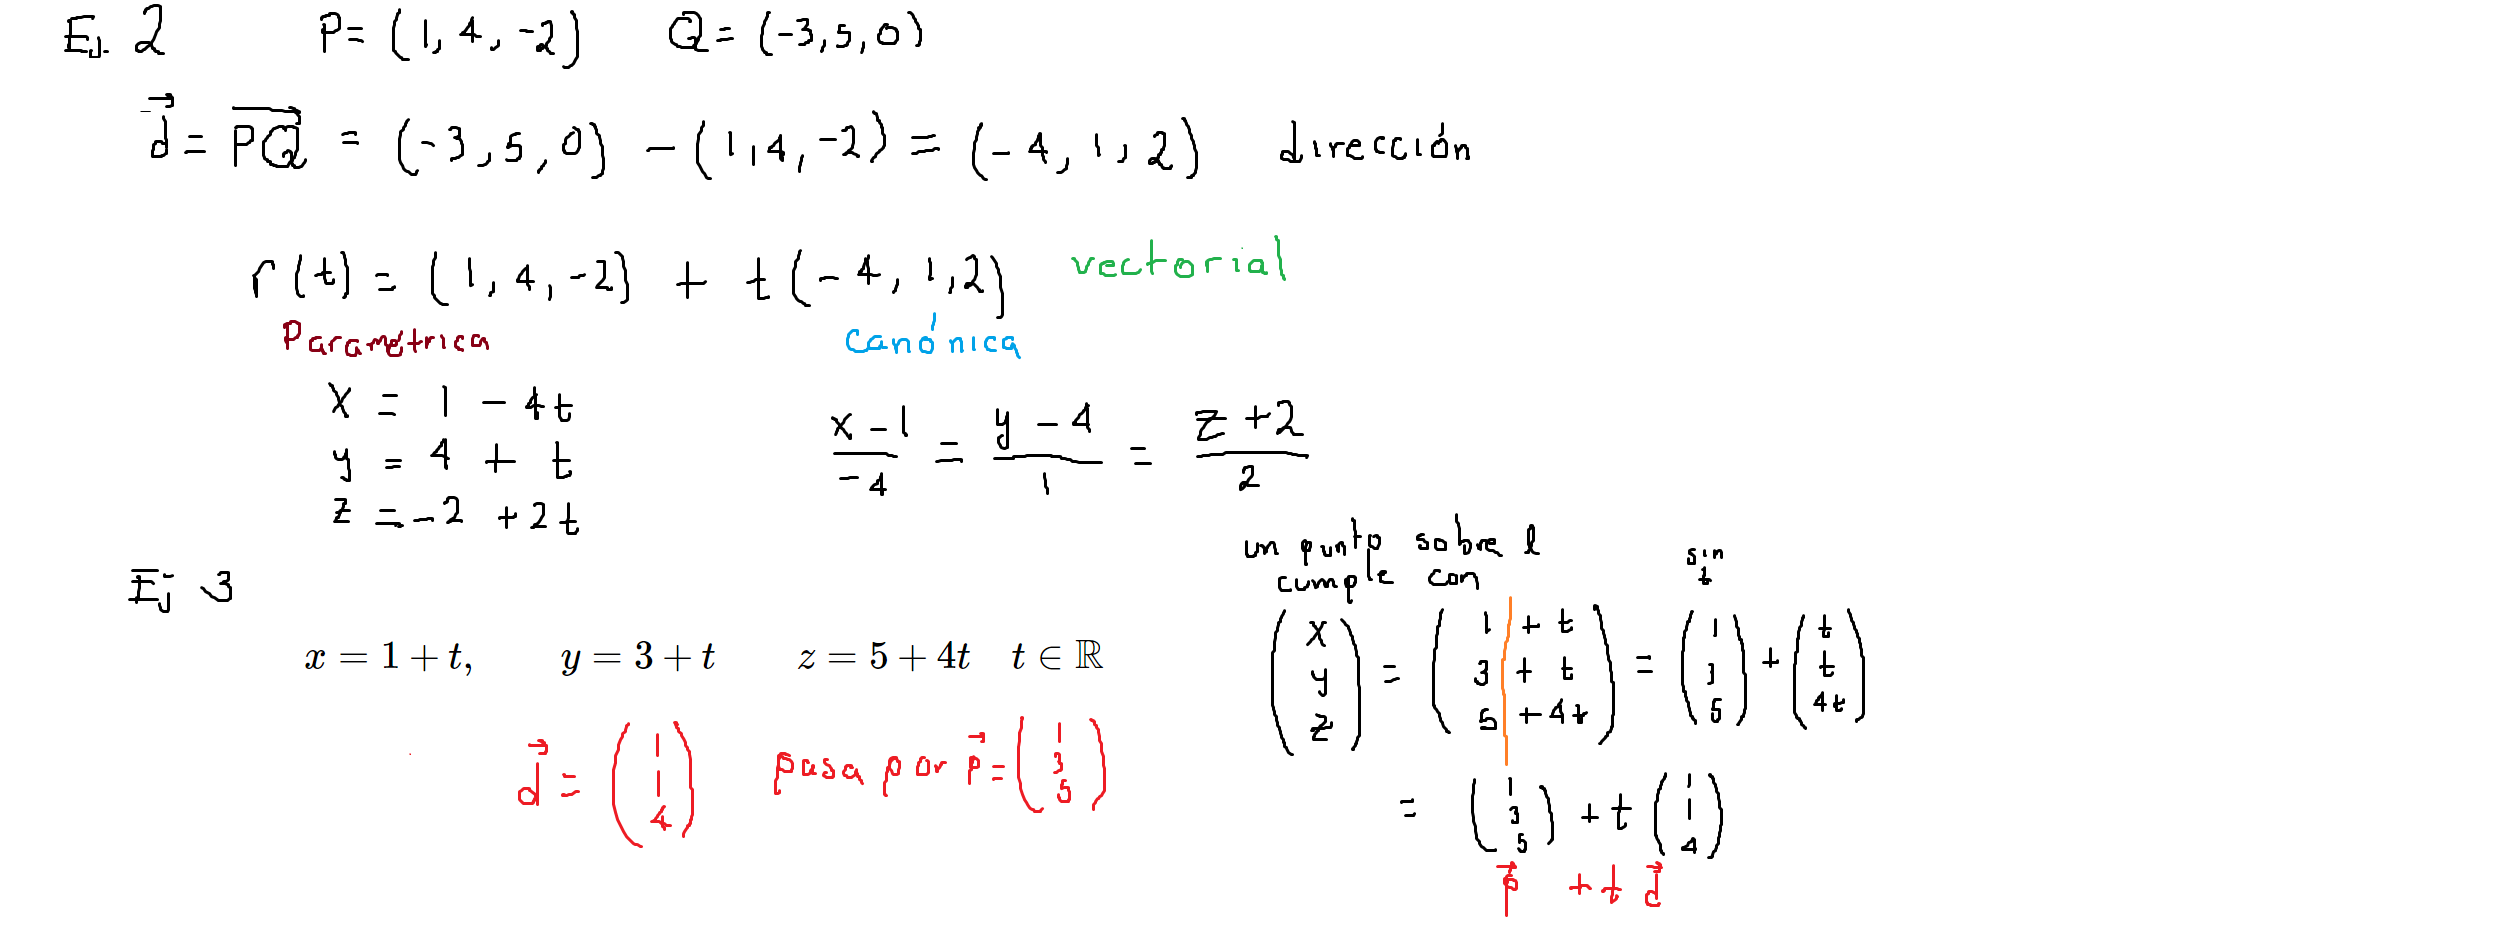 Ej. 2 P= (1, 4, -2) Q= (-3, 5, 0)
d⃗ = PQ⃗ = (-3, 5, 0) - (1, 4, -2) = (-4, 1, 2) dirección
r(t) = (1, 4, -2) + t(-4, 1, 2) vectorial
Paramétrica canónica
x = 1 - 4t
y = 4 + t
z = -2 + 2t
(x-1)/(-4) = (y-4)/1 = (z+2)/2
Ej 3
x = 1 + t, y = 3 + t z = 5 + 4t t ∈ ℝ
d⃗ = (1 1 4) pasa por p⃗ = (1 3 5)
un punto sobre l
cumple con
sin
t
(x y z) = (1 + t 3 + t 5 + 4t) = (1 3 5) + (t t 4t)
= (1 3 5) + t (1 1 4)
p⃗ + t d⃗